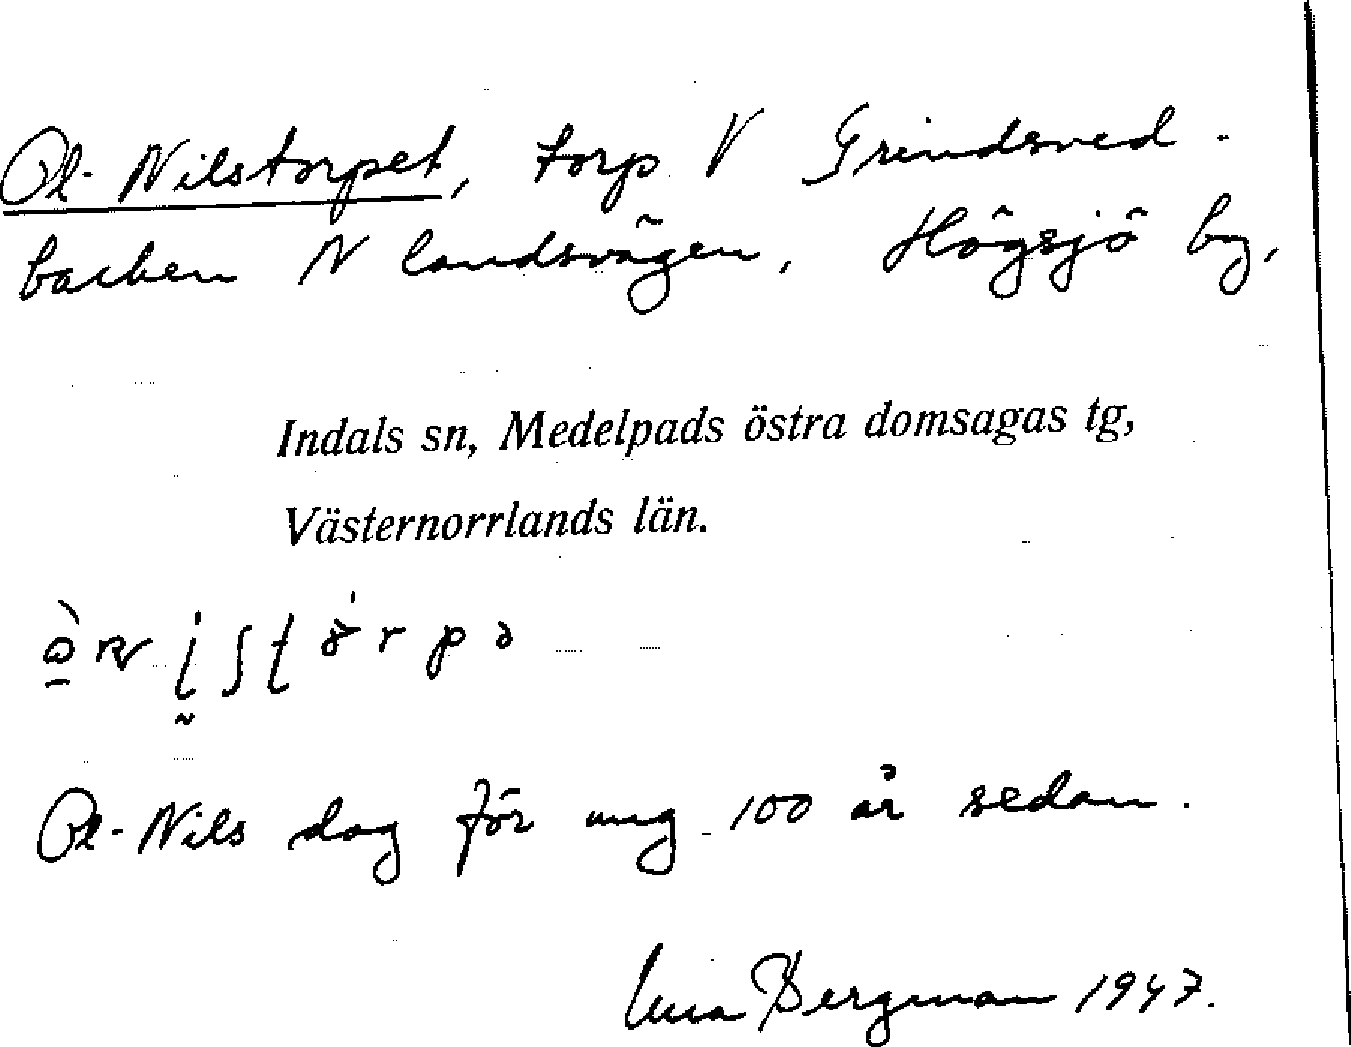 Ol-Nilstorpet, torp V Grindsved-
backen N landsvägen, Högsjö by,
Indals sn, Medelpads östra domsagas tg,
Västernorrlands län.
Ol-Nils dog för ung 100 år sedan.
Bergman 1947.